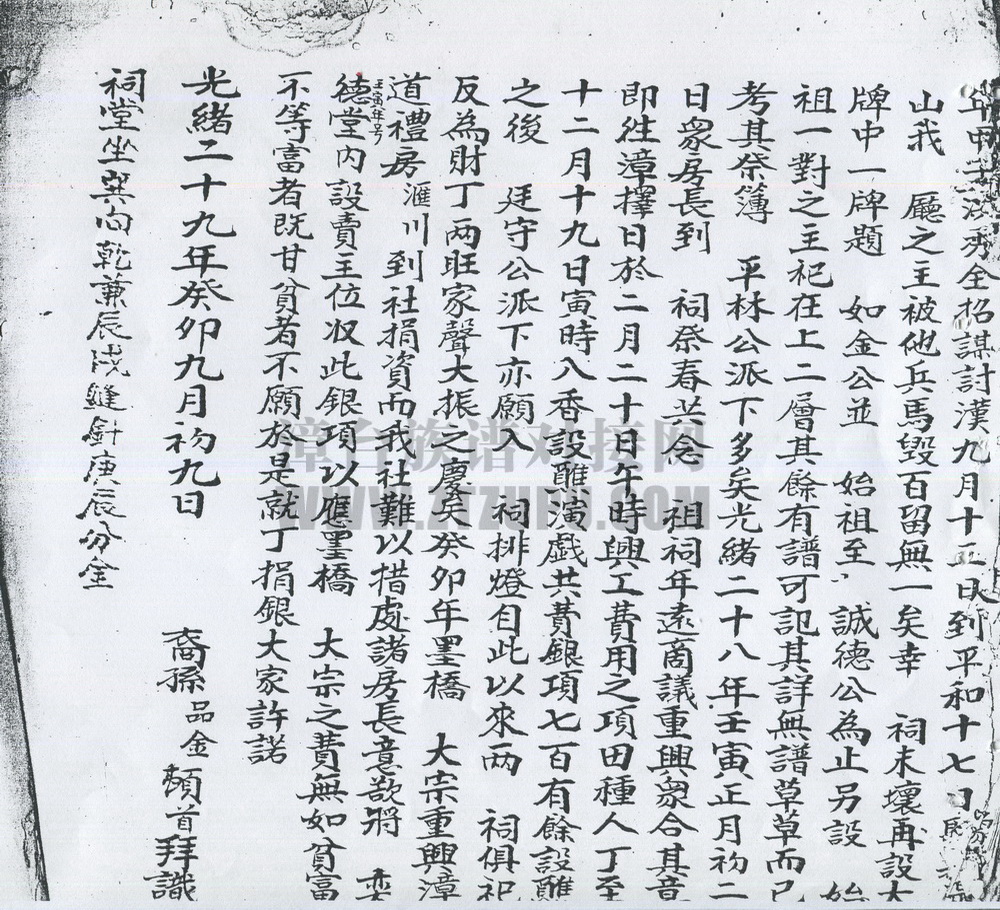 年甲子溪秀全招謀討漢九月十五日到平和十七日
山我 廳之主被他兵馬毀百留無一矣幸 祠未壞再設大
牌中一牌題 如金公並 始祖至 誠德公為止另設 始
祖一對之主祀在上二層其餘有譜可記其詳無譜草草而已
考其祭簿 平林公派下多矣光緒二十八年壬寅正月初二
日衆房長到 祠祭春共念 祖祠年遠商議重興衆合其音
即往漳擇日於二月二十日午時興工費用之項田種人丁至
十二月十九日寅時入香設醮演戲共費銀項七百有餘設醮
之後 廷守公派下亦願入 祠排燈自此以來兩 祠俱祀
反為財丁兩旺家聲大振之慶矣癸卯年墨橋 大宗重興漳
道禮房 滙川到社捐資而我社難以措處諸房長意欲將 奕
壬寅年号
德堂內設賣主位収此銀項以應墨橋 大宗之費無如貧富
不等富者既甘貧者不願於是就丁捐銀大家許諾
光緒二十九年癸卯九月初九日
裔孫品金頓首拜識
祠堂坐巽向乾兼辰戌縫針庚辰分金
章台族谱对接网
WWW.ZTZUPU.COM